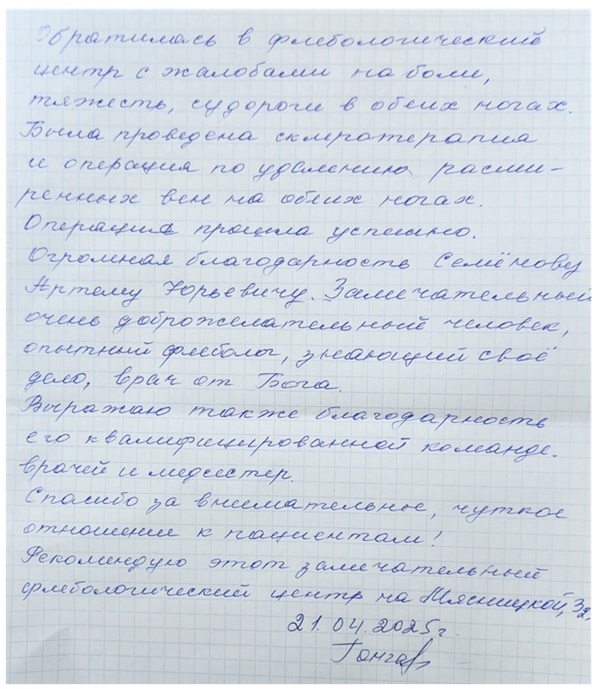 Обратилась в флебологический
центр с жалобами на боли,
тяжесть, судороги в обеих ногах.
Была проведена склеротерапия
и операция по удалению расши-
ренных вен на обеих ногах.
Операция прошла успешно.
Огромная благодарность Семёнову
Артему Юрьевичу. Замечательный
очень доброжелательный человек,
опытный флеболог, знающий своё
дело, врач от Бога.
Выражаю также благодарность
его квалифицированной команде.
врачей и медсестер.
Спасибо за внимательное, чуткое
отношение к пациентам!
Рекомендую этот замечательный
флебологический центр на Мясницкой, 32,
21.04.2025г.